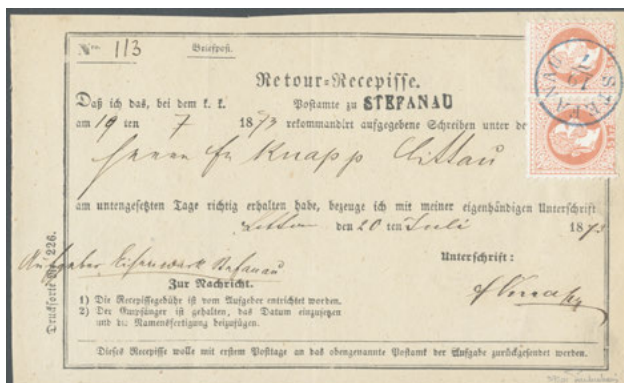 Nro. 113 Briefpost.
Retour-Recepisse.
Daß ich das, bei dem k. k. Postamte zu STEFANAU
am 19 ten 7 1873 rekommandirt aufgegebene Schreiben unter de
Herrn Fr Knapp Littau
am untengesetzten Tage richtig erhalten habe, bezeuge ich mit meiner eigenhändigen Unterschrift
Littau den 20 ten Juli 1873
Aufgeber Eisenwerk Stefanau
Unterschrift:
Zur Nachricht.
F Knapp
1) Die Recepissegebühr ist vom Aufgeber entrichtet worden.
2) Der Empfänger ist gehalten, das Datum einzusetzen
und die Namensfertigung beizufügen.
Dieses Recepisse wolle mit erstem Posttage an das obengenannte Postamt der Aufgabe zurückgesendet werden.
Drucksorte Nr. 226.
STEFANAU
19
7